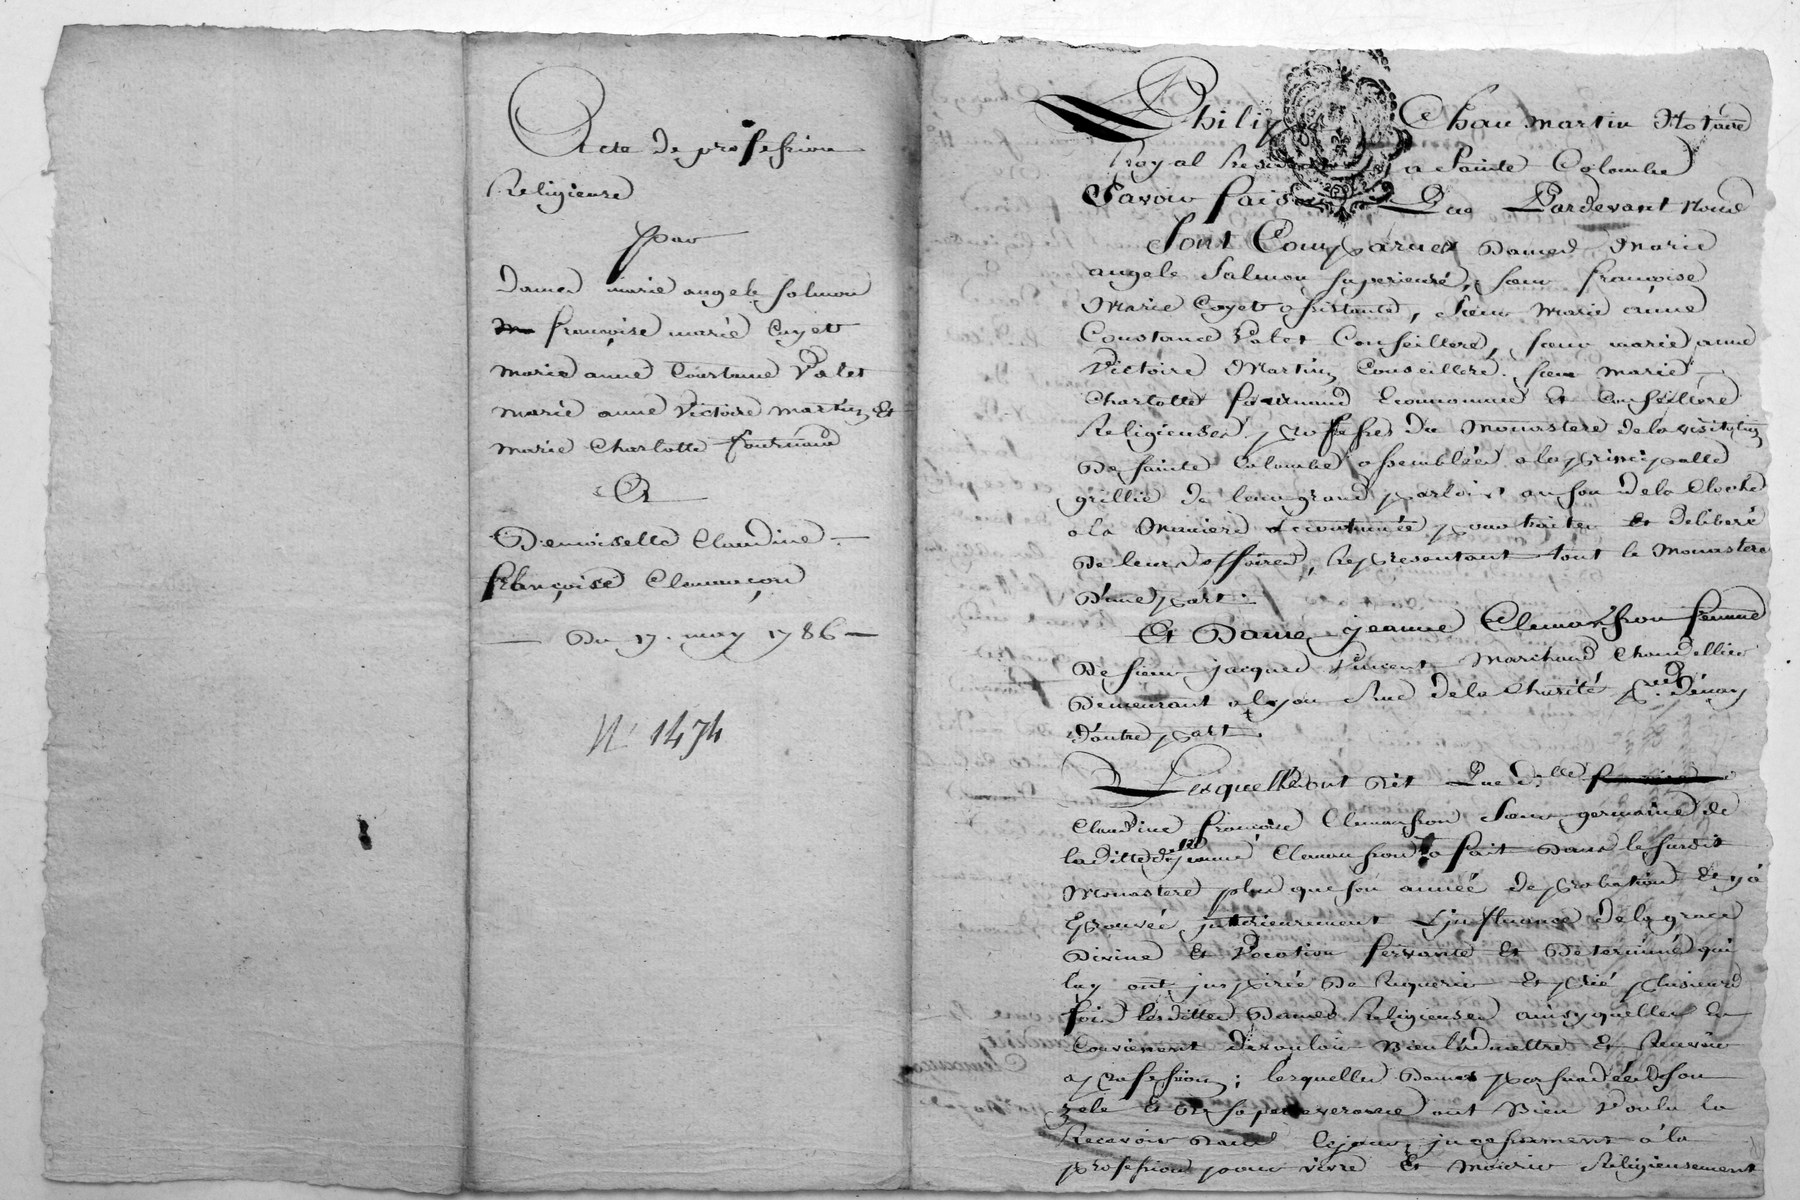 Acte de profession
Religieuse
par
dames marie angele Salmon
françoise marie Coyet
marie anne Constance Valet
marie anne victoire martin Et
marie Charlotte fournand
Et
Demoiselle Claudine
françoise Clemençon
Du 17. may 1786
N° 1474
Philip Chaumartin Notaire
Royal a Sainte Colombe
Savoir faisons Que Pardevant Nous
Sont Comparues Dames Marie
angele Salmon superieure, sœur françoise
Marie Coyet assistante, sœur Marie anne
Constance Valet Conseillere, sœur marie anne
Victoire Martin Conseillere. sœur marie
Charlotte fournand Economme Et Conseillere
Religieuses professes du Monastere de la visitation
De sainte Colombe assemblées a la principalle
grillie de leur grand parloir au son de la Cloche
a la Maniere accoutumée pour traiter Et deliberé
De leurs affaires, Representant tout le Monastere
D'une part.
Et Dame jeanne Clemansson femme
De sieur jacques Vincent Marchand Chandellier
Demeurant a lyon Rue de la Charité d'énay
D'autre part.
Lesquelles ont dit Que d.lle
Claudine françoise Clemansson sœur germaine de
laditte jeanne Clemansson a fait dans le susdit
Monastere plus que son année de probation Et y a
Eprouvée interieurement L'influance de la grace
Divine Et Vocation fervante Et Determiné qui
luy ont inspirée De Requerir Et prié plusieurs
fois lesdittes Dames Religieuses ainsy quelles En
Convienent de vouloir Bien l'admettre Et Recevoir
a profession; lesquelles Dames persuadées de son
zele Et de sa perseverance ont Bien Voulu la
Recevoir Dans Ce jour, incessament à la
profession pour vivre Et Mourir Religieusement